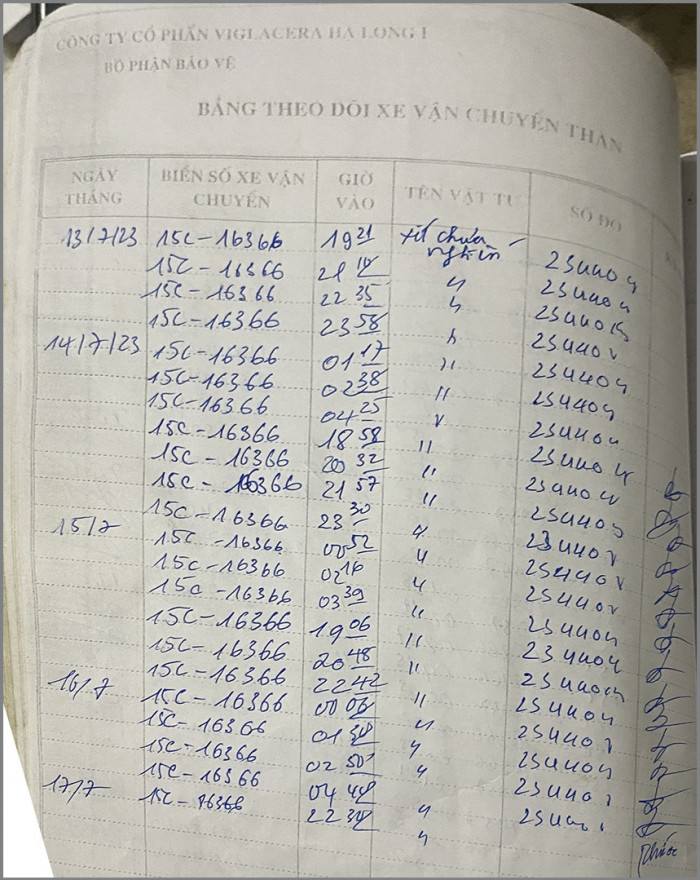 CÔNG TY CỔ PHẦN VIGLACERA HẠ LONG I
BỘ PHẬN BẢO VỆ
BẢNG THEO DÕI XE VẬN CHUYỂN THAN
NGÀY THÁNG BIỂN SỐ XE VẬN CHUYỂN GIỜ VÀO TÊN VẬT TƯ SỐ ĐO
13/7/23 15C-16366 19 21 xít chưa nghiền 23440
15C-16366 21 " 23440
15C-16366 22 35 " 23440
15C-16366 23 58 " 23440
14/7/23 15C-16366 01 17 " 23440
15C-16366 02 38 " 23440
15C-16366 04 25 " 23440
15C-16366 18 58 " 23440
15C-16366 20 32 " 23440
15C-16366 21 57 " 23440
15C-16366 23 30 " 23440
15/7 15C-16366 00 52 " 23440
15C-16366 02 16 " 23440
15C-16366 03 39 " 23440
15C-16366 19 06 " 23440
15C-16366 20 48 " 23440
15C-16366 22 42 " 23440
16/7 15C-16366 00 06 " 23440
15C-16366 01 " 23440
15C-16366 02 50 " 23440
15C-16366 04 "
17/7 15C-16366 22 "